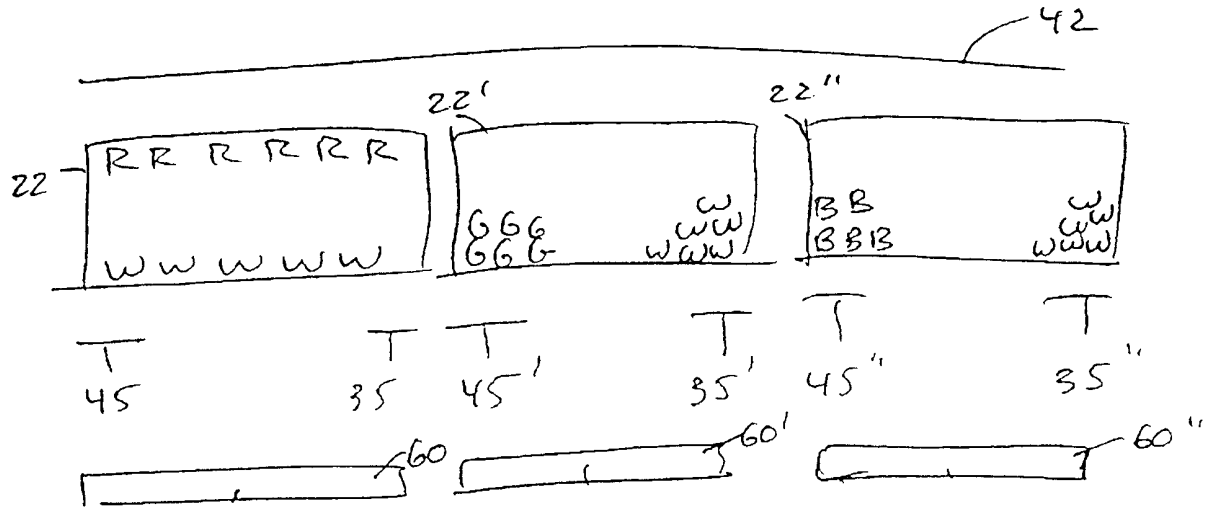 42
22' 22"
22 R R R R R R
W
B B W W
G G G W W
G G G W W W B B B W W W
W W W W W
45 35 45' 35' 45" 35"
60 60' 60"